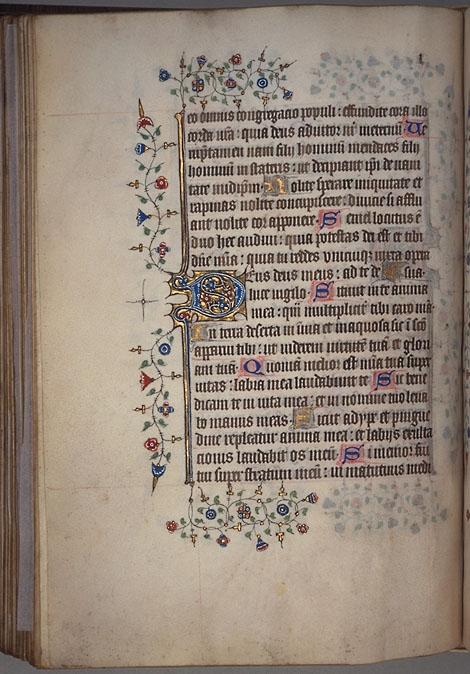 eo omnis congregacio populi: effundite cora illo
corda vra: quia deus adiutor nr in eternu Ve
rūptamen vani filij hominū mendaces filij
hominū in stateris: ut decipiant ipi de vani
tate in idipm. Nolite sperare iniquitate et
rapinas nolite concupiscere: divicie si afflu
ant nolite cor apponere. Semel locutus ē
duo hec audivi: quia potestas dei est et tibi
dñe mīa: quia tu reddes unicuiq; iuxta opera
Deus deus meus: ad te de sua.
luce vigilo. Sitivit in te anima
mea: qm multipliciter tibi caro mea.
In terra deserta in via et inaquosa sic i sco
apparui tibi: ut viderem virtute tua et glori
am tua. Quoniam melior est mia tua super
vitas: labia mea laudabunt te Sic bene
dicam te in vita mea: et in nomine tuo leva
bo manus meas. Sicut adype et pingue
dine repleatur anima mea: et labijs exulta
tionis laudabit os meū. Si memor fui
tui super stratum meū: in matutinis medi